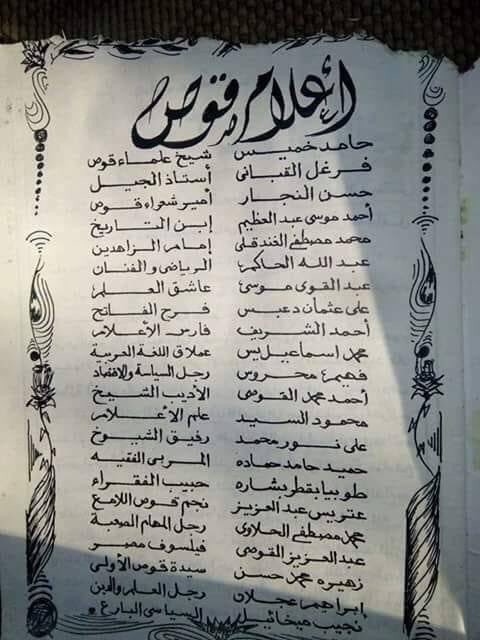 أعلام قوص
حامد خميس شيخ علماء قوص
فرغل القبانى أستاذ الجيل
حسن النجار أمير شعراء قوص
أحمد موسى عبد العظيم إبن التاريخ
محمد مصطفى الفندقلى إمام الزاهدين
عبد الله الحاكم الرياضى والفنان
عبد القوى موسى عاشق العلم
على عثمان دعبس فرج الفاتح
أحمد الشريف فارس الأعلام
محمد اسماعيل يس عملاق اللغة العربية
فهيم محروس رجل السياسة والاقتصاد
أحمد محمد القوصى الأديب الشيخ
محمود السيد علم الأعلام
على نور محمد رفيق الشيوخ
حميد حامد حماده المربى الفقيه
طوبيا بقطر بشاره حبيب الفقراء
عتريس عبد العزيز نجم قوص اللامع
محمد مصطفى الحلاوى رجل المهام الصعبة
عبد العزيز القوصى فيلسوف مصر
زهيره محمد حسن سيدة قوص الأولى
إبراهيم عجلان رجل العلم والدين
نجيب ميخائيل السياسى البارع